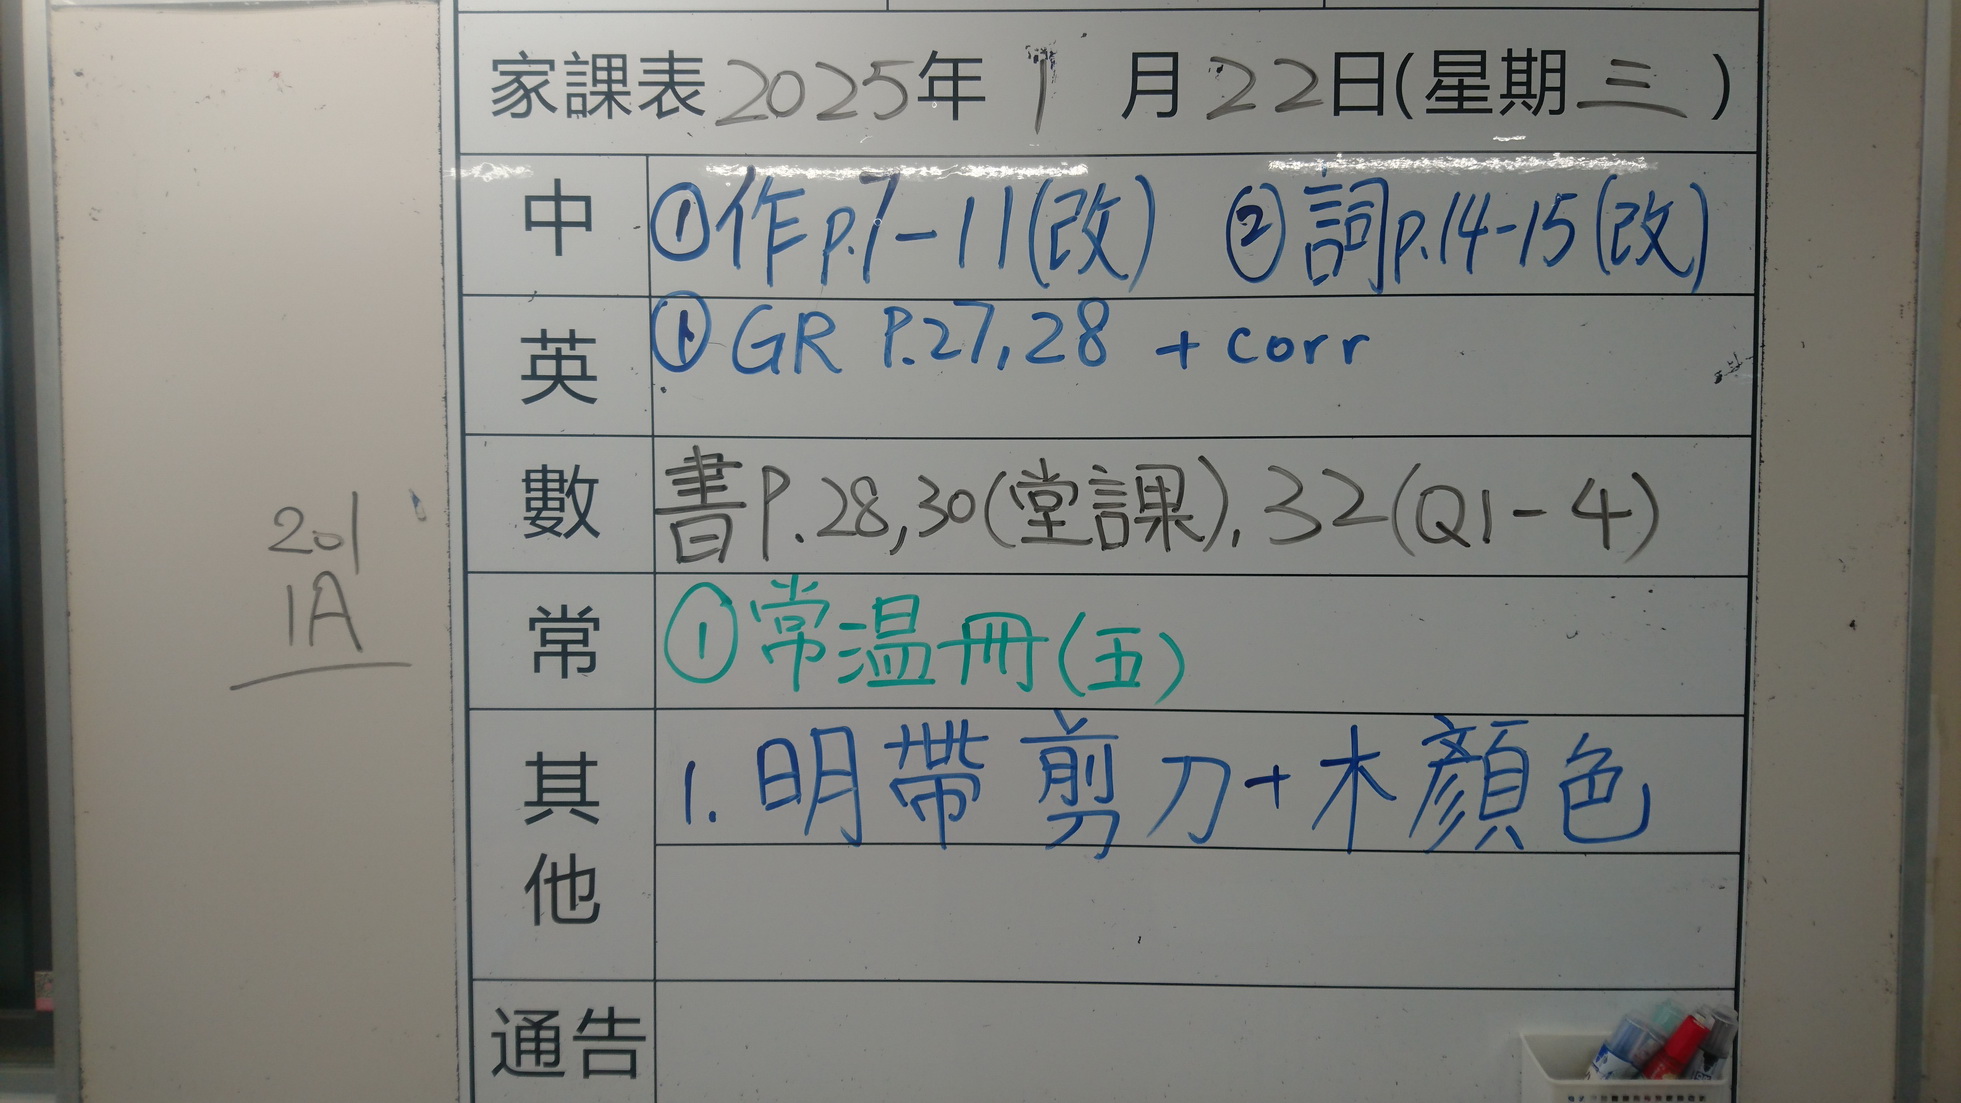 家課表2025年1月22日(星期三)
中 ①作p.7-11(改) ②詞p.14-15(改)
英 ①GR P.27,28 + corr
數 書P.28,30(堂課),32(Q1-4)
常 ①常温冊(五)
其他 1.明帶剪刀+木顏色
通告
201
1A